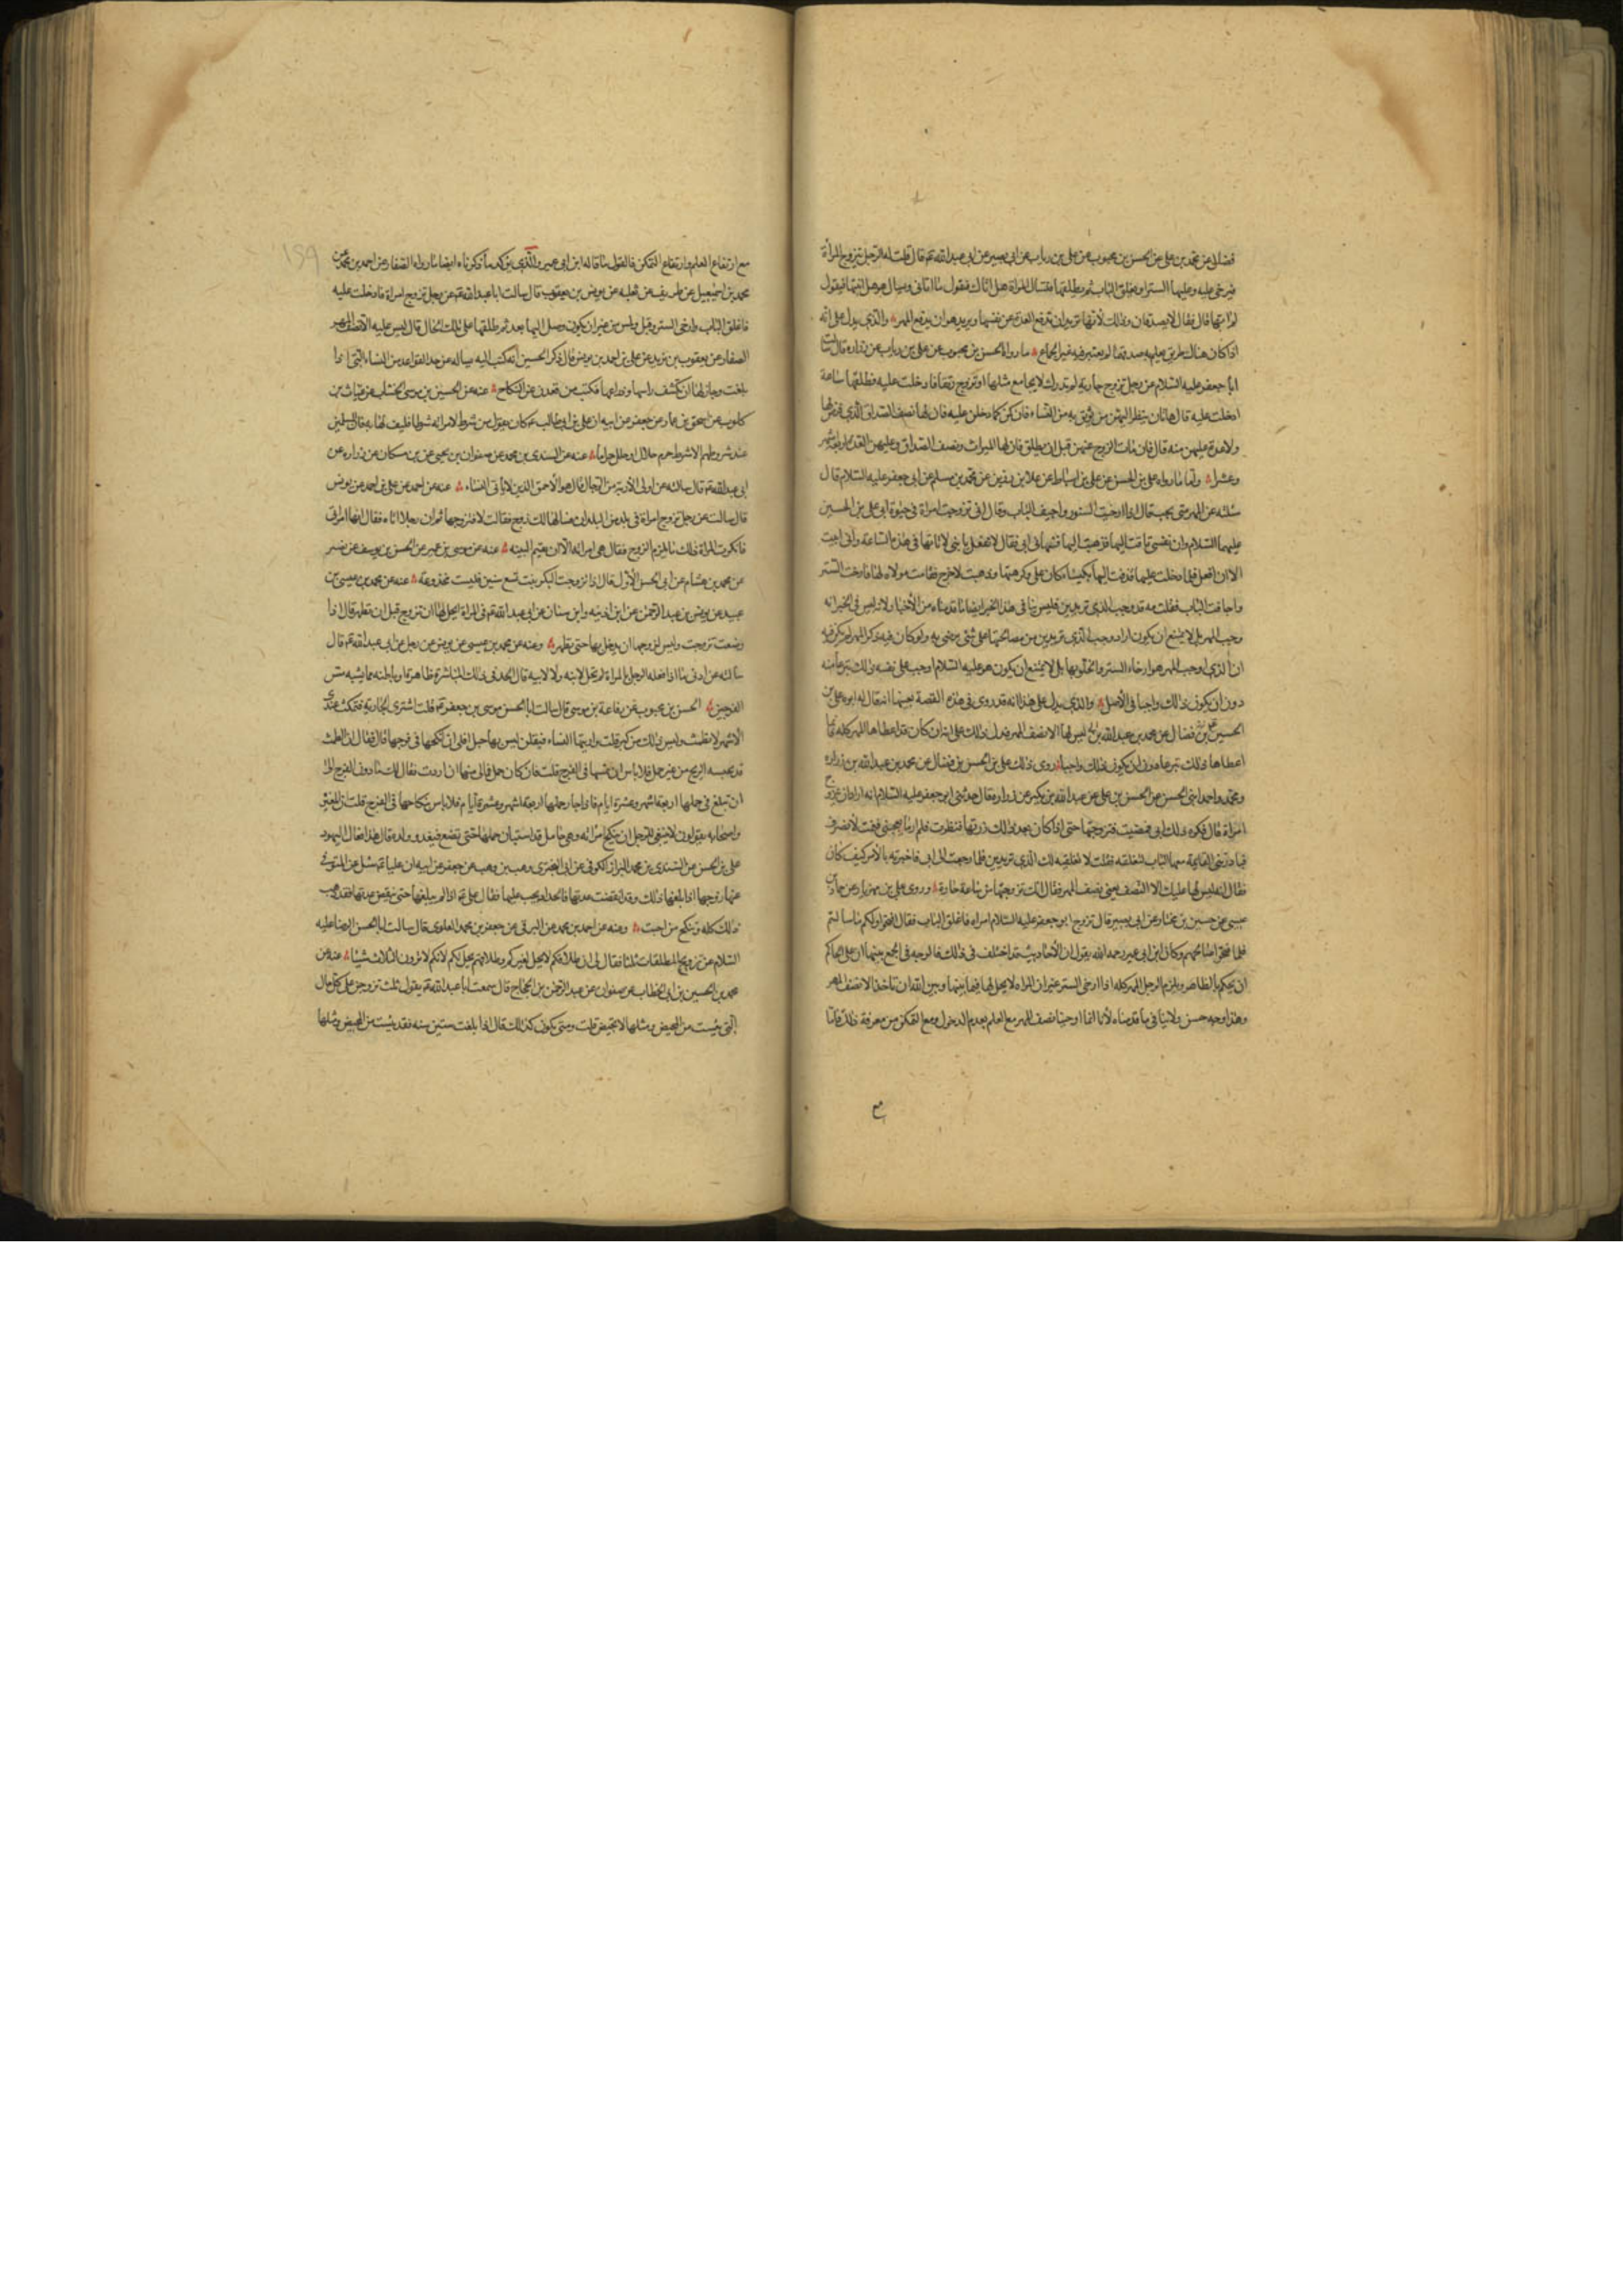 فضال عن محمد بن علی عن الحسن بن محبوب عن علی بن رباب عن ابی بصیر عن ابی عبدالله ع قال قلت له الرجل یتزوج المرأة
فیرخی علیه وعلیها الستر او یغلق الباب ثم یطلقها فتسأل المراة هل اتاك فتقول ما اتانی ویسال هو هل اتیتها فیقول
لم اتها قال فقال لا یصدقان وذلك لأنها ترید ان تدفع العدة عن نفسها ویرید هو ان یدفع المهر والذی یدل علی انه
اذا کان هناك طریق یعلم به صدقهما لم یعتبر فیه غیر الجماع ما رواه الحسن بن محبوب عن علی بن رباب عن زراره قال سالت
ابا جعفر علیه السلام عن رجل تزوج جاریة لم تدرك لا یجامع مثلها او تزوج رتقا فادخلت علیه فطلقها ساعة
ادخلت علیه قال هاتان ینظر الیهن من یوثق به من النساء فان کن کما دخلن علیه فان لها نصف الصداق الذی فرض لها
ولا عدة علیهن منه قال فان مات الزوج عنهن قبل ان یطلق فان لها المیراث ونصف الصداق وعلیهن العدة اربعة اشهر
وعشرا واما ما رواه علی بن الحسن عن علی بن اسباط عن علا بن رزین عن محمد بن مسلم عن ابی جعفر علیه السلام قال
سئلته عن المهر متی یجب قال اذا ارخیت الستور واجیف الباب وقال انی تزوجت امراة فی حیوة ابی علی بن الحسین
علیهما السلام وان نفسی تاقت الیها فذهبت الیها فنهانی ابی فقال لا تفعل یا بنی لا تاتها فی هذه الساعة وانی ابیت
الا ان افعل فلما دخلت علیها قذفت الیها بکساء کان علی وکرهتها وذهبت لاخرج فقامت مولاة لها فارخت الستر
واجافت الباب فقلت مه قد وجب الذی تریدین فلیس ینافی هذا الخبر ایضا ما قدمناه من الأخبار ولانه لیس فی الخبر انه
وجب المهر بل لا یمتنع ان یکون اراد وجب الذی تریدین من مصالحتها علی شئ یرضی به ولو کان فیه ذکر المهر لم یکن فیه
ان الذی اوجب المهر هو ارخاء الستر والخلو بها بل لا یمتنع ان یکون هو علیه السلام اوجب علی نفسه ذلك تبرعا منه
دون ان یکون ذلك واجبا فی الأصل والذی یدل علی هذا انه قد روی فی هذه القصة بعینها انه قال له ابوه علی بن
الحسین ع لیس لها الا نصف المهر فدل ذلك علی انه ان کان قد اعطاها المهر کله فانما
اعطاها ذلك تبرعا دون ان یکون ذلك واجبا روی ذلك علی بن الحسن بن فضال عن محمد بن عبدالله بن زراره
ومحمد واحمد ابنی الحسن عن الحسن بن علی عن عبدالله بن بکیر عن زراره قال حدثنی ابو جعفر علیه السلام انه اراد ان یتزوج
امراة قال فکره ذلك ابی فمضیت فتزوجتها حتی اذا کان بعد ذلك زرتها فنظرت فلم ار ما یعجبنی فقمت لأنصرف
فبادرتنی القایمة معها الباب لتغلقه فقلت لا تغلقیه لك الذی تریدین فلما رجعت الی ابی فاخبرته بالأمر کیف کان
فقال انه لیس لها علیك الا النصف یعنی نصف المهر فقال انك تزوجتها فی ساعة حارة وروی علی بن مهزیار عن حماد بن
عیسی عن حسین بن مختار عن ابی بصیر قال تزوج ابو جعفر علیه السلام امراه فاغلق الباب فقال افتحوا ولکم ما سالتم
فلما فتحوا صالحهم وکان ابن ابی عمیر رحمه الله یقول ان الأحادیث قد اختلف فی ذلك فالوجه فی الجمع بینها ان علی الحاکم
ان یحکم بالظاهر ویلزم الرجل المهر کله اذا ارخی الستر غیر ان المراه لا یحل لها فیما بینها وبین الله ان تاخذ الا نصف المهر
وهذا وجه حسن ولا ینافی ما قدمناه لأنا انما اوجبنا نصف المهر مع العلم بعدم الدخول ومع التمکن من معرفة ذلك فاما
مع
مع ارتفاع العلم وارتفاع التمکن فالقول ما قاله ابن ابی عمیر والذی یؤکد ما ذکرناه ایضا ما رواه الصفار عن احمد بن محمد عن
محمد بن اسمعیل عن ظریف عن ثعلبه عن یونس بن یعقوب قال سالت ابا عبدالله ع عن رجل تزوج امراة فادخلت علیه
فاغلق الباب وارخی الستر وقبل ولمس من غیر ان یکون وصل الیها بعد ثم طلقها علی تلك الحال قال لیس علیه الا نصف المهر
الصفار عن یعقوب بن یزید عن علی بن احمد بن یونس قال ذکر الحسین انه کتب الیه یساله عن حد القواعد من النساء التی اذا
بلغت وجاز لها ان تکشف راسها وذراعها فکتب من قعدن عن النکاح عنه عن الحسن بن موسی الخشاب عن غیاث بن
کلوب عن اسحق بن عمار عن جعفر عن ابیه ان علی بن ابی طالب ع کان یقول من شرط لامراته شرطا فلیف لها به فان المسلمین
عند شروطهم الا شرط حرم حلالا او حلل حراما عنه عن السندی بن محمد عن صفوان بن یحیی عن بن مسکان عن زراره عن
ابی عبدالله ع قال سالته عن اولی الأربة من الرجال قال هو الأحمق الذی لا یأتی النساء عنه عن احمد عن علی بن احمد عن یونس
قال سالت عن رجل تزوج امراة فی بلد من البلدان فسالها لك زوج فقالت لا فتزوجها ثم ان رجلا اتاه فقال هی امراتی
فانکرت المراة ذلك ما یلزم الزوج فقال هی امراته الا ان یقیم البینه عنه عن موسی بن عمیر عن الحسن بن یوسف عن نصر
عن محمد بن هشام عن ابی الحسن الأول قال اذا تزوجت البکر بنت تسع سنین فلیست مخدوعة عنه عن محمد بن عیسی بن
عبید عن یونس بن عبدالرحمن عن ابن اذینه وابن سنان عن ابی عبدالله ع فی المراة ایحل لها ان تتزوج قبل ان تطهر قال اذا
وضعت تزوجت ولیس لزوجها ان یدخل بها حتی تطهر وعنه عن محمد بن عیسی عن یونس عن رجل عن ابی عبدالله ع قال
سالته عن ادنی ما اذا فعله الرجل بالمراة لم تحل لابنه ولا لابیه قال الحد فی ذلك المباشرة ظاهرة او باطنه مما یشبه مس
الفرجین الحسن بن محبوب عن رفاعة بن موسی قال سالت ابا الحسن موسی بن جعفر ع قلت اشتری الجاریة فتمکث عندی
الأشهر لا تطمث ولیس ذلك من کبر قلت واریتها النساء فیقلن لیس بها حبل افلی ان انکحها فی فرجها قال فقال ان الطمث
قد یحبسه الریح من غیر حمل فلا باس ان تمسها فی الفرج قلت فان کان حمل فمالی منها ان اردت فقال لك ما دون الفرج الی
ان تبلغ فی حملها اربعة اشهر وعشرة ایام فاذا جاز حملها اربعة اشهر وعشرة أیام فلا باس بنکاحها فی الفرج قلت ان المغیرة
واصحابه یقولون لا ینبغی للرجل ان ینکح امراته وهی حامل قد استبان حملها حتی تضع فیغدو ولده قال هذا فعال الیهود
علی بن الحسن عن السندی بن محمد البزاز الکوفی عن ابی البختری وهب بن وهب عن جعفر عن ابیه ان علیا ع سئل عن المتوفی
عنها زوجها اذا بلغها ذلك وقد انقضت عدتها فالحداد یجب علیها فقال علی ع اذا لم یبلغها حتی تنقضی عدتها فقد ذهب
ذلك کله وتنکح من احبت وعنه عن احمد بن محمد عن البرقی عن جعفر بن محمد العلوی قال سالت ابا الحسن الرضا علیه
السلام عن تزویج المطلقات ثلثا فقال لی ان طلاقکم لا یحل لغیرکم وطلاقهم یحل لکم لأنکم لا ترون الثلاث شیئا عنه عن
محمد بن الحسین بن ابی الخطاب عن صفوان عن عبدالرحمن بن الحجاج قال سمعت ابا عبدالله ع یقول ثلث تزوجن علی کل حال
التی یئست من المحیض ومثلها لا تحیض قلت ومتی یکون کذلك قال اذا بلغت ستین سنه فقد یئست من المحیض ومثلها